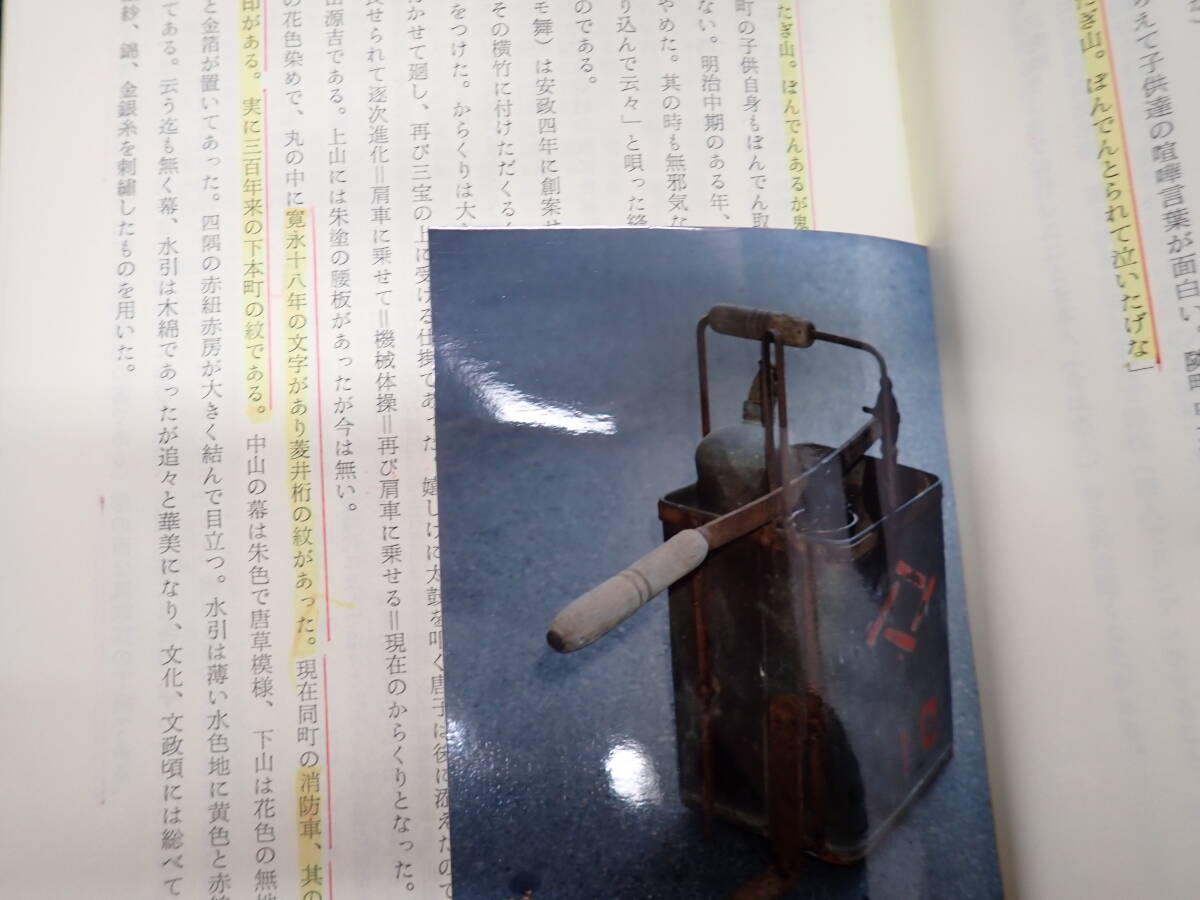 みえて子供達の喧嘩言葉が面白い。
たぎ山。ぼんでんとられて泣いたげな」
たぎ山。ぼんでんあるが鬼
町の子供自身もぼんでん取
ない。明治中期のある年、
やめた。其の時も無邪気な
り込んで云々」と唄った
のである。
モ舞）は安政四年に創案せ
その横竹に付けただくるく
をつけた。からくりは大
かせて廻し、再び三宝の上に受ける仕掛であった。嬉しげに太鼓を叩く唐子は後に添えたので
せられて逐次進化＝肩車に乗せて＝機械体操＝再び肩車に乗せる＝現在のからくりとなった。
源吉である。上山には朱塗の腰板があったが今は無い。
の花色染めで、丸の中に寛永十八年の文字があり菱井桁の紋があった。現在同町の消防車、其の
印がある。実に三百年来の下本町の紋である。中山の幕は朱色で唐草模様、下山は花色の無地
と金箔が置いてあった。四隅の赤紐赤房が大きく結んで目立つ。水引は薄い水色地に黄色と赤
てある。云う迄も無く幕、水引は木綿であったが追々と華美になり、文化、文政頃には総べて
紗、錦、金銀糸を刺繍したものを用いた。